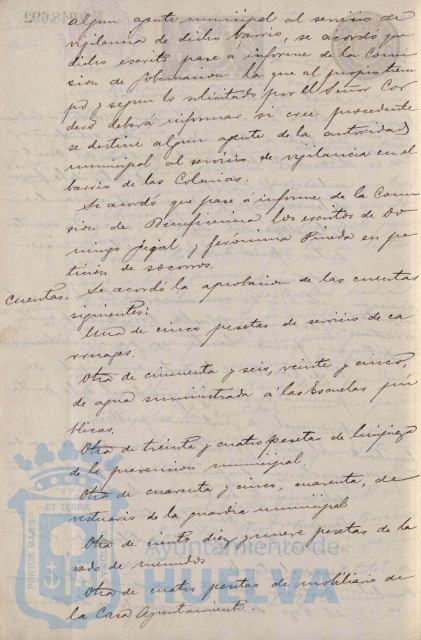 algun agente municipal al servicio de
vigilancia de dicho barrio, se acordó que
dicho escrito pase á informe de la Comi
sion de Gobernacion la que al propio tiem
po y segun lo solicitado por el Señor Cor
dero deberá informar si cree procedente
se destine algun agente de la autoridad
municipal al servicio de vigilancia en el
barrio de las Colonias.
Se acordó que pase á informe de la Comi
sion de Beneficencia los escritos de Do
mingo y Jerónima Pineda en pe
ticion de socorros.
Cuentas. Se acordó la aprobacion de las cuentas
siguientes:
Una de cinco pesetas de servicio de ca
rruages.
Otra de cincuenta y seis, veinte y cinco,
de agua suministrada á las Escuelas pú
blicas.
Otra de treinta y cuatro pesetas de limpieza
de la prevencion municipal.
Otra de cuarenta y cinco, cuarenta, de
vestuario de la guardia municipal
Otra de ciento diez y nueve pesetas de la
vado de menudos
Otra de cuatro pesetas de mobiliario de
la Casa Ayuntamiento.
PORTUS MARIS ET TERRÆ
Ayuntamiento de
HUELVA